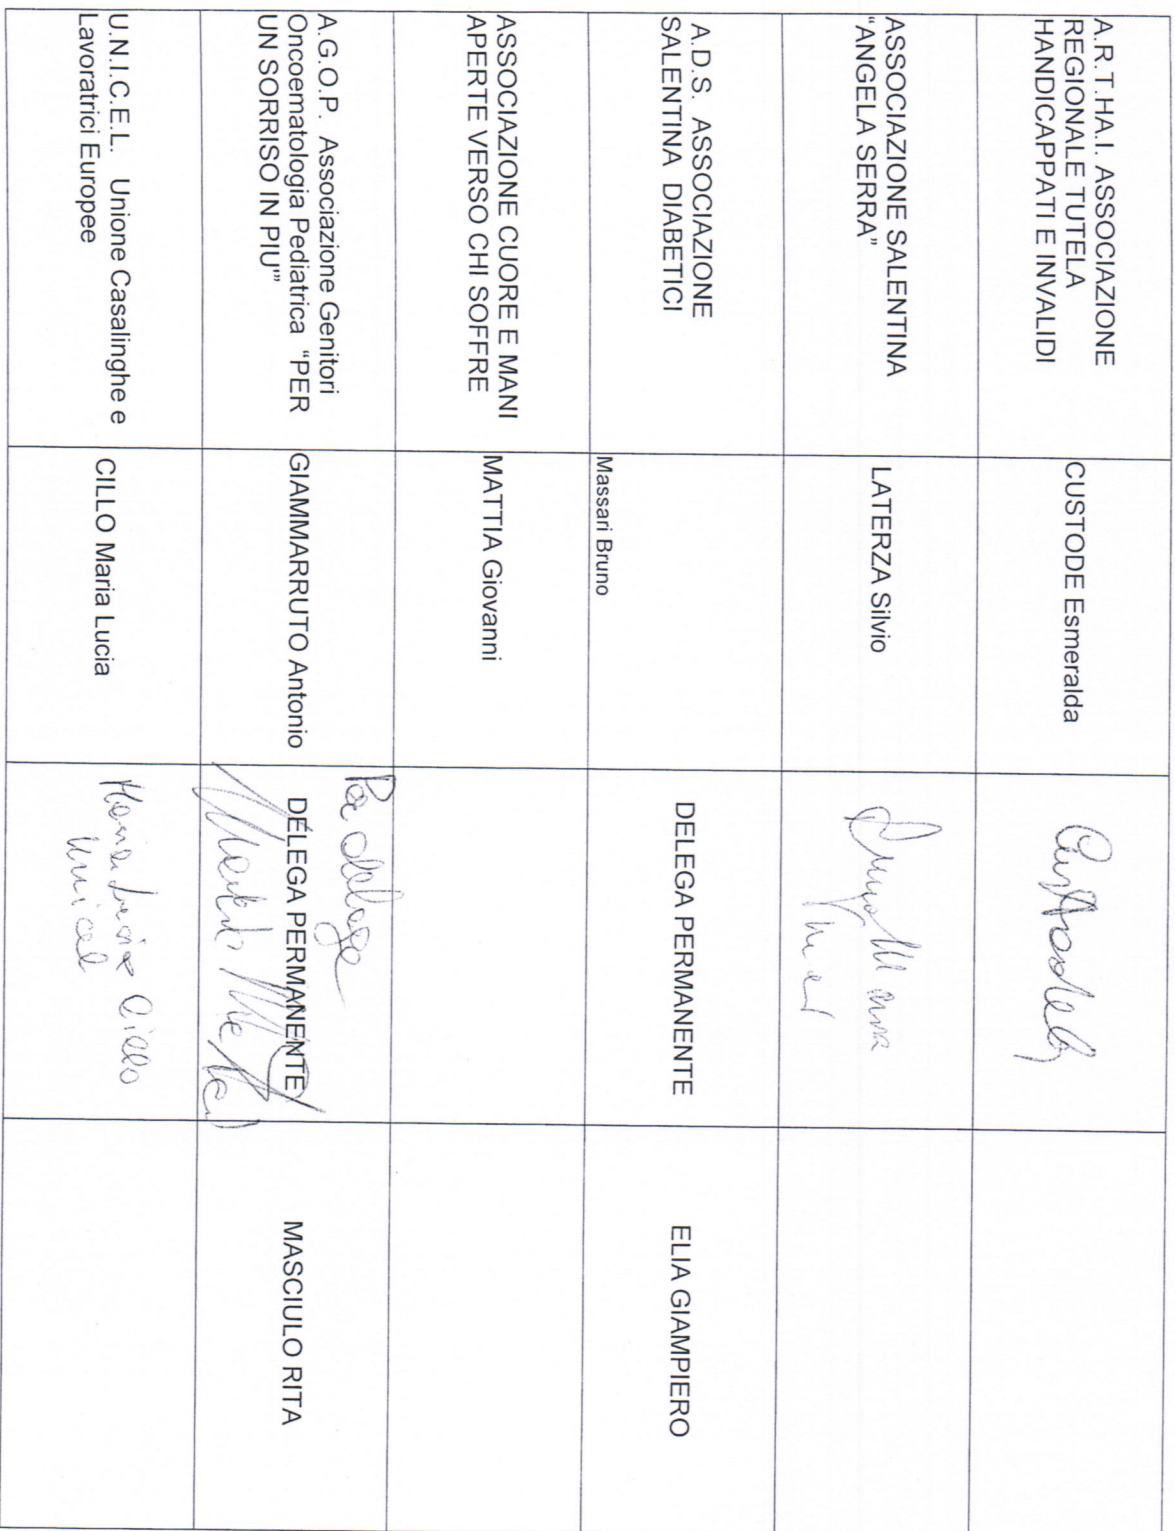 A.R.T.HA.I. ASSOCIAZIONE
REGIONALE TUTELA
HANDICAPPATI E INVALIDI
CUSTODE Esmeralda
ASSOCIAZIONE SALENTINA
“ANGELA SERRA”
LATERZA Silvio
A.D.S. ASSOCIAZIONE
SALENTINA DIABETICI
Massari Bruno
DELEGA PERMANENTE
ELIA GIAMPIERO
ASSOCIAZIONE CUORE E MANI
APERTE VERSO CHI SOFFRE
MATTIA Giovanni
A.G.O.P. Associazione Genitori
Oncoematologia Pediatrica “PER
UN SORRISO IN PIU'”
GIAMMARRUTO Antonio
Per delega
DELEGA PERMANENTE
MASCIULO RITA
U.N.I.C.E.L. Unione Casalinghe e
Lavoratrici Europee
CILLO Maria Lucia
Maria Lucia Cillo
Unicel